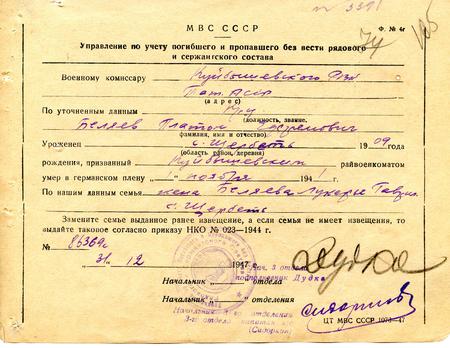 п 3391
МВС СССР
Ф. № 4г
Управление по учету погибшего и пропавшего без вести рядового
и сержантского состава
Военному комиссару Куйбышевского
Тат. АССР
(адрес)
По уточненным данным
должность, звание.
Беляев Платон
(фамилия, имя и отчество)
Уроженец с. Щербеть 1909 года
(область район, деревня)
рождения, призванный Куйбышевским райвоенкоматом
умер в германском плену " 1 " ноября 1941 г.
По нашим данным семья: жена Беляева Лукерья Гаврил.
с. Щербеть
Замените семье выданное ранее извещение, а если семья не имеет извещения, то
выдайте таковое согласно приказа НКО № 023—1944 г.
№ 86369с
" 31 " 12 1947 г.
Нач. 3 отдела
подполковник Дудка
Начальник " отдела
Начальник " отделения
Начальник отделения
3-го отдела капитан
(Сидоркин)
ЦТ МВС СССР 1073—47